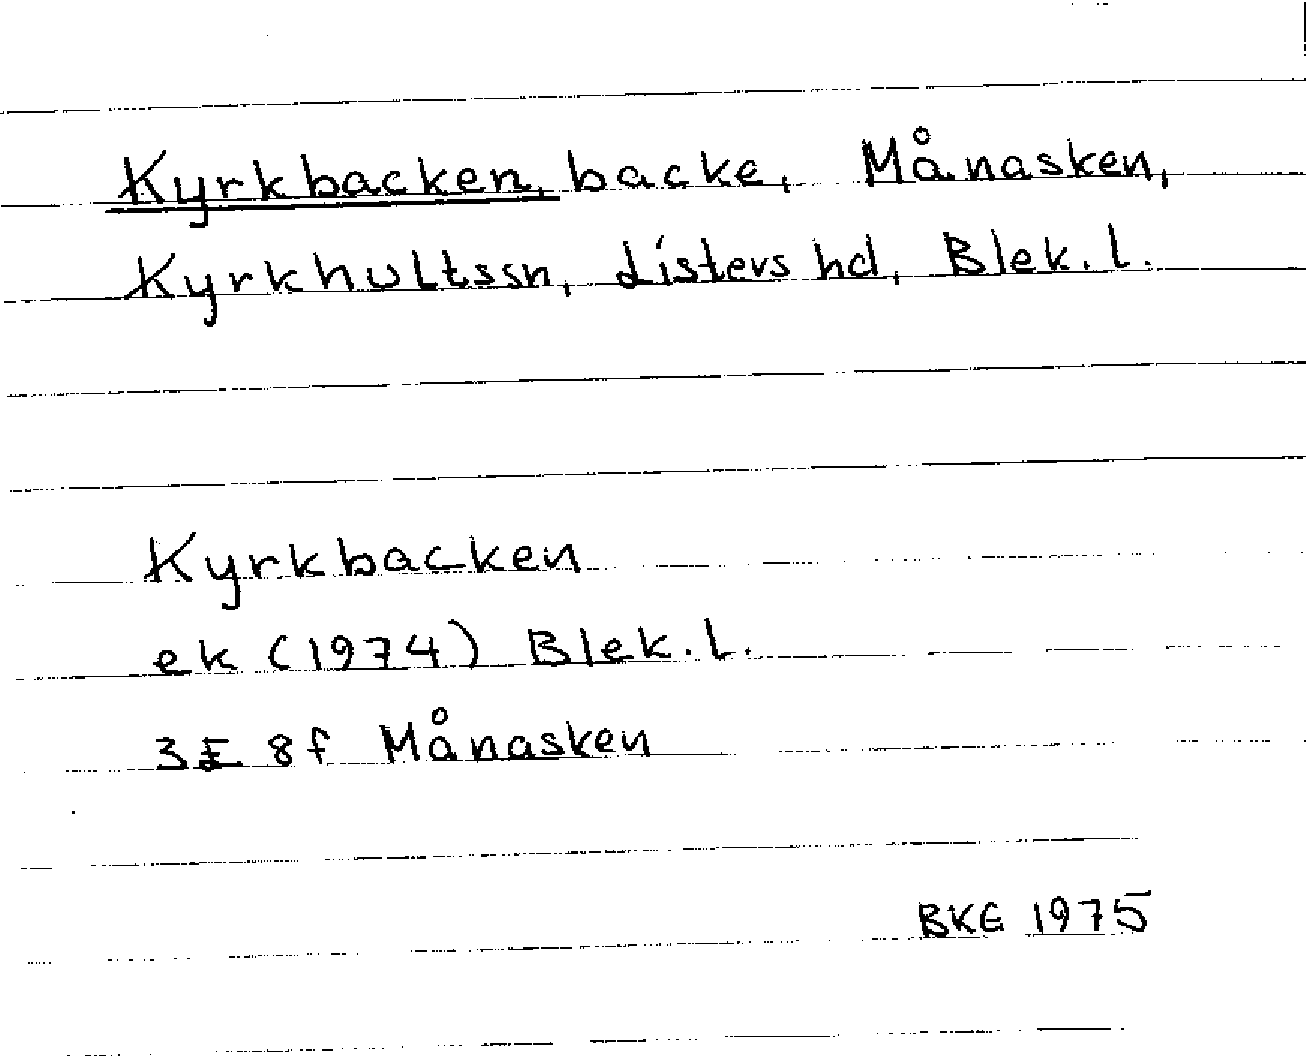 Kyrkbacken, backe, Månasken,
Kyrkhultssn, Listers hd, Blek. l.
Kyrkbacken
ek (1974) Blek. l.
3E 8f Månasken
BKG 1975